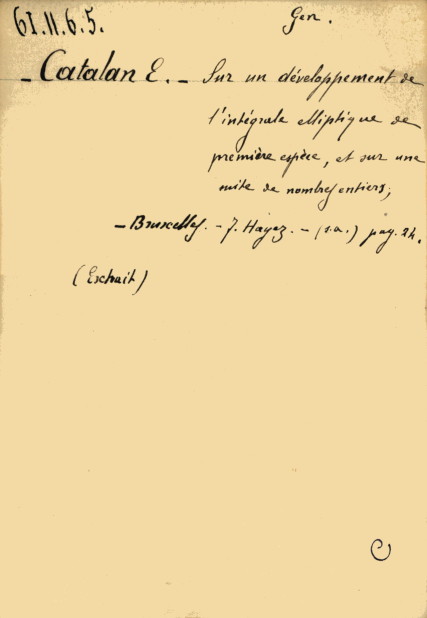 61.11.6.5.
Gen.
- Catalan E. - Sur un développement de
l'intégrale elliptique de
première espèce, et sur une
suite de nombres entiers;
- Bruxelles. - J. Hayez. - (s.a.) pag. 24.
(Extrait)
C